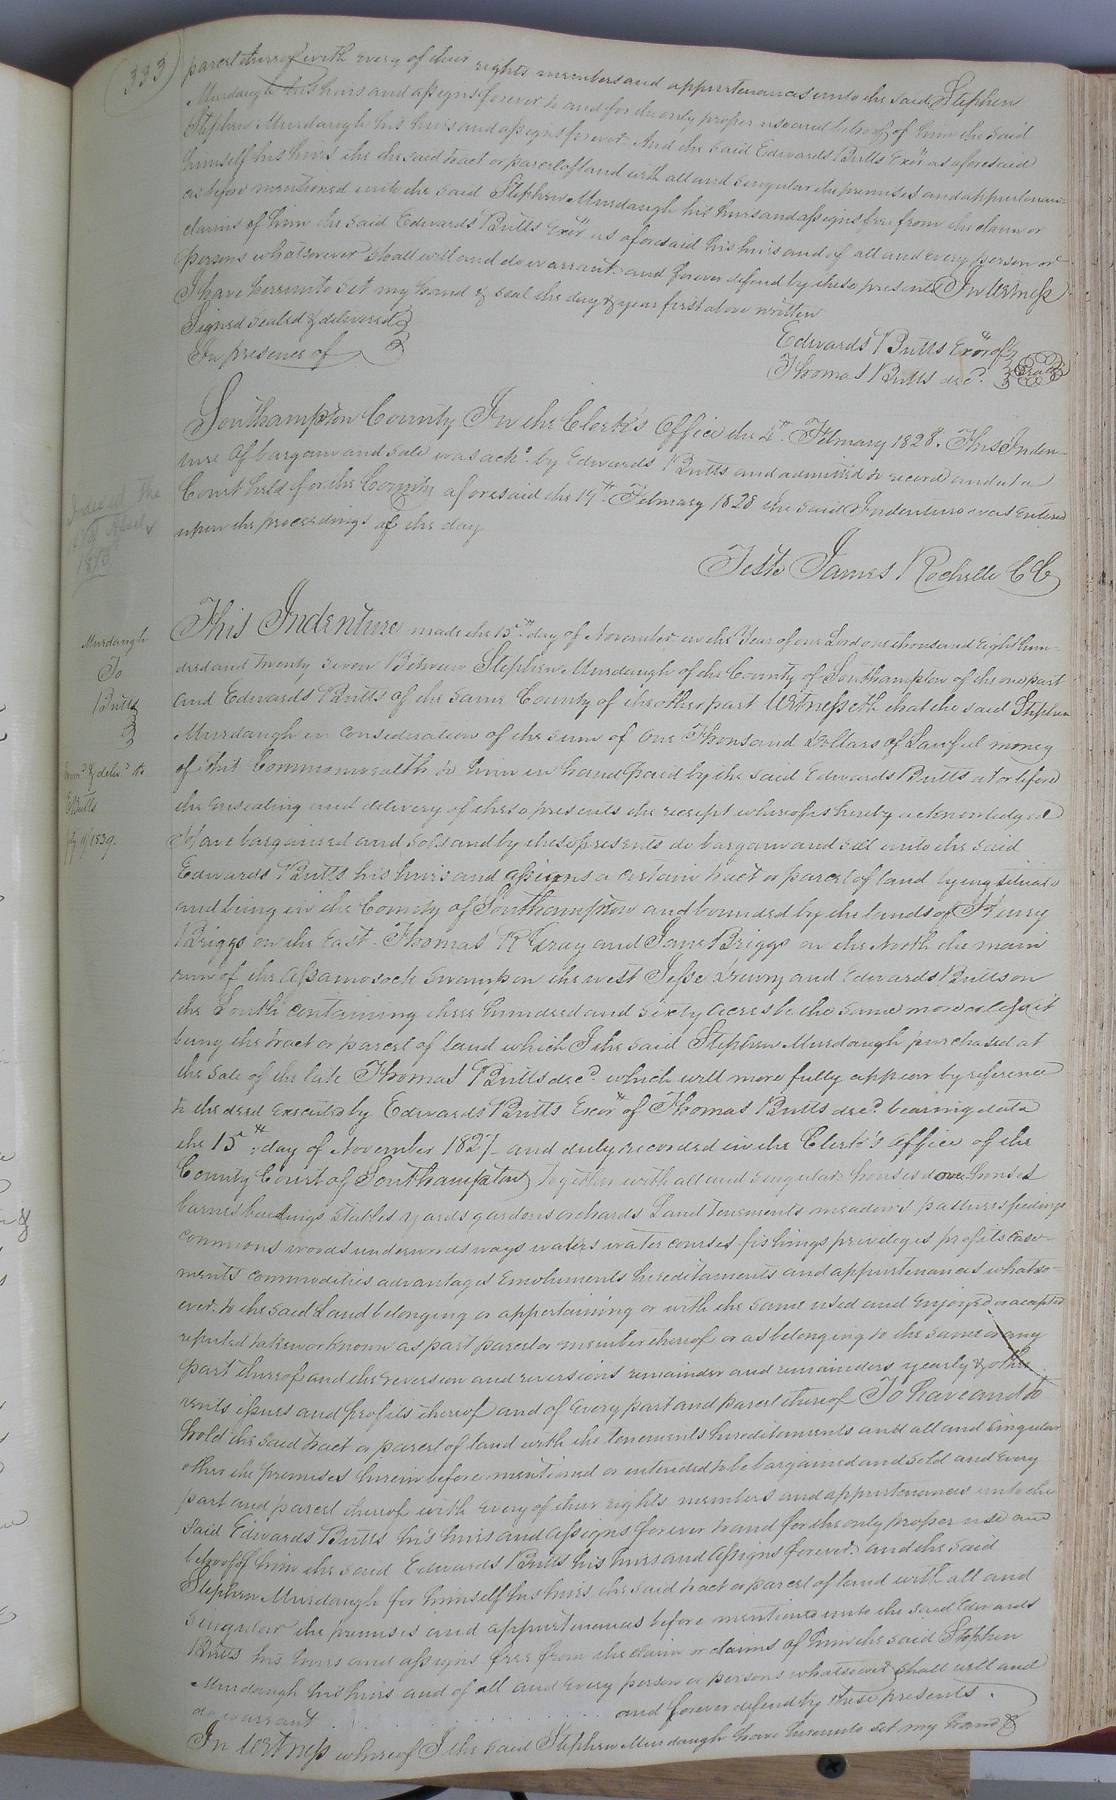 (333)
parcel thereof with every of their rights members and appurtenances unto the said Stephen
Murdaugh his heirs and assigns forever to and for the only proper use and behoof of him the said
Stephen Murdaugh his heirs and assigns forever. And the said Edwards Butts Exor as aforesaid
himself his heirs the the said tract or parcel of land with all and singular the premises and appurtenances
as before mentioned unto the said Stephen Murdaugh his heirs and assigns free from the claim or
claims of him the said Edwards Butts Exor as aforesaid his heirs and of all and every person or
persons whatsoever shall will and do warrant and forever defend by these presents In Witness
I have hereunto set my hand & seal the day & year first above written
Signed sealed & delivered
In presence of
Edwards Butts Exor of
Thomas Butts decd. Seal
Southampton County In the Clerk's Office the 4th February 1828. This Inden-
ture of bargain and sale was ackd. by Edwards Butts and admitted to record and at a
Court held for the County aforesaid the 19th February 1828 the said Indenture was entered
upon the proceedings of the day
Teste James Rochelle CC
Murdaugh
To
Butts
Examd & deld to
E Butts
1839.
This Indenture made the 15th day of November in the Year of our Lord one thousand Eight hun-
dred and twenty seven Between Stephen Murdaugh of the County of Southampton of the one part
and Edwards Butts of the same County of the other part Witnesseth that the said Stephen
Murdaugh in consideration of the sum of One Thousand Dollars of Lawful money
of this Commonwealth to him in hand paid by the said Edwards Butts at or before
the ensealing and delivery of these presents the receipt whereof is hereby acknowledged
Have bargained and sold and by these presents do bargain and sell unto the said
Edwards Butts his heirs and assigns a certain tract or parcel of land lying situate
and being in the County of Southampton and bounded by the lands of Henry
Briggs on the East. Thomas R Gray and Jane Briggs on the North the main
run of the Assamosock Swamp on the west Jesse Drewry and Edwards Butts on
the South containing three hundred and sixty acres be the same more or less it
being the tract or parcel of land which I the said Stephen Murdaugh purchased at
the sale of the late Thomas Butts decd. which will more fully appear by reference
to the deed executed by Edwards Butts Exor of Thomas Butts decd. bearing date
the 15th day of November 1827 and duly recorded in the Clerk's office of the
County Court of Southampton together with all and singular houses dove houses
barnes buildings stables yards gardens orchards Land Tenements meadows pastures feedings
commons woods underwoods ways waters water courses fishings priviledges profits ease-
ments commodities advantages Emoluments hereditaments and appurtenances whatso-
ever to the said Land belonging or appertaining or with the same used and enjoyed or accepted
reputed taken or known as part parcel or member thereof or as belonging to the same or any
part thereof and the reversion and reversions remainder and remainders yearly & other
rents issues and profits thereof and of every part and parcel thereof To have and to
hold the said tract or parcel of land with the tenements hereditaments and all and singular
other the premises herein before mentioned or intended to be bargained and sold and every
part and parcel thereof with every of their rights members and appurtenances unto the
said Edwards Butts his heirs and assigns forever to and for the only proper use and
behoof of him the said Edwards Butts his heirs and assigns forever. and the said
Stephen Murdaugh for himself his heirs the said tract or parcel of land with all and
singular the premises and appurtenances before mentioned unto the said Edwards
Butts his heirs and assigns free from the claim or claims of him the said Stephen
Murdaugh his heirs and of all and every person or persons whatsoever shall will and
do warrant and forever defend by these presents.
In Witness whereof I the said Stephen Murdaugh have hereunto set my hand &